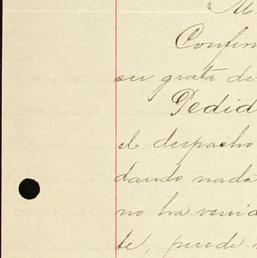 M
Confir
su grata de
Pedid
el despacho
dando nada
no ha venid
te, puede